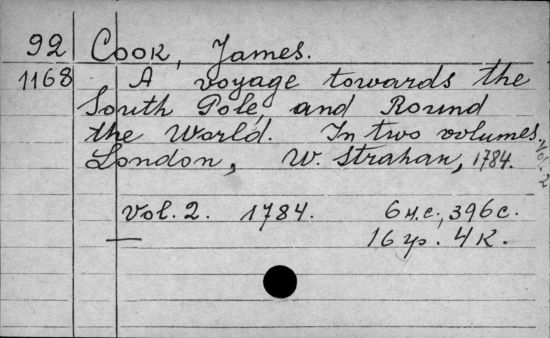 92 Cook, James.
1168 A voyage towards the
South Pole, and Round
the World. In two volumes.
London, W. Strahan, 1784.
Vol. 2
Vol. 2. 1784. 6 н.с., 396 с.
16 гр. 4 к.